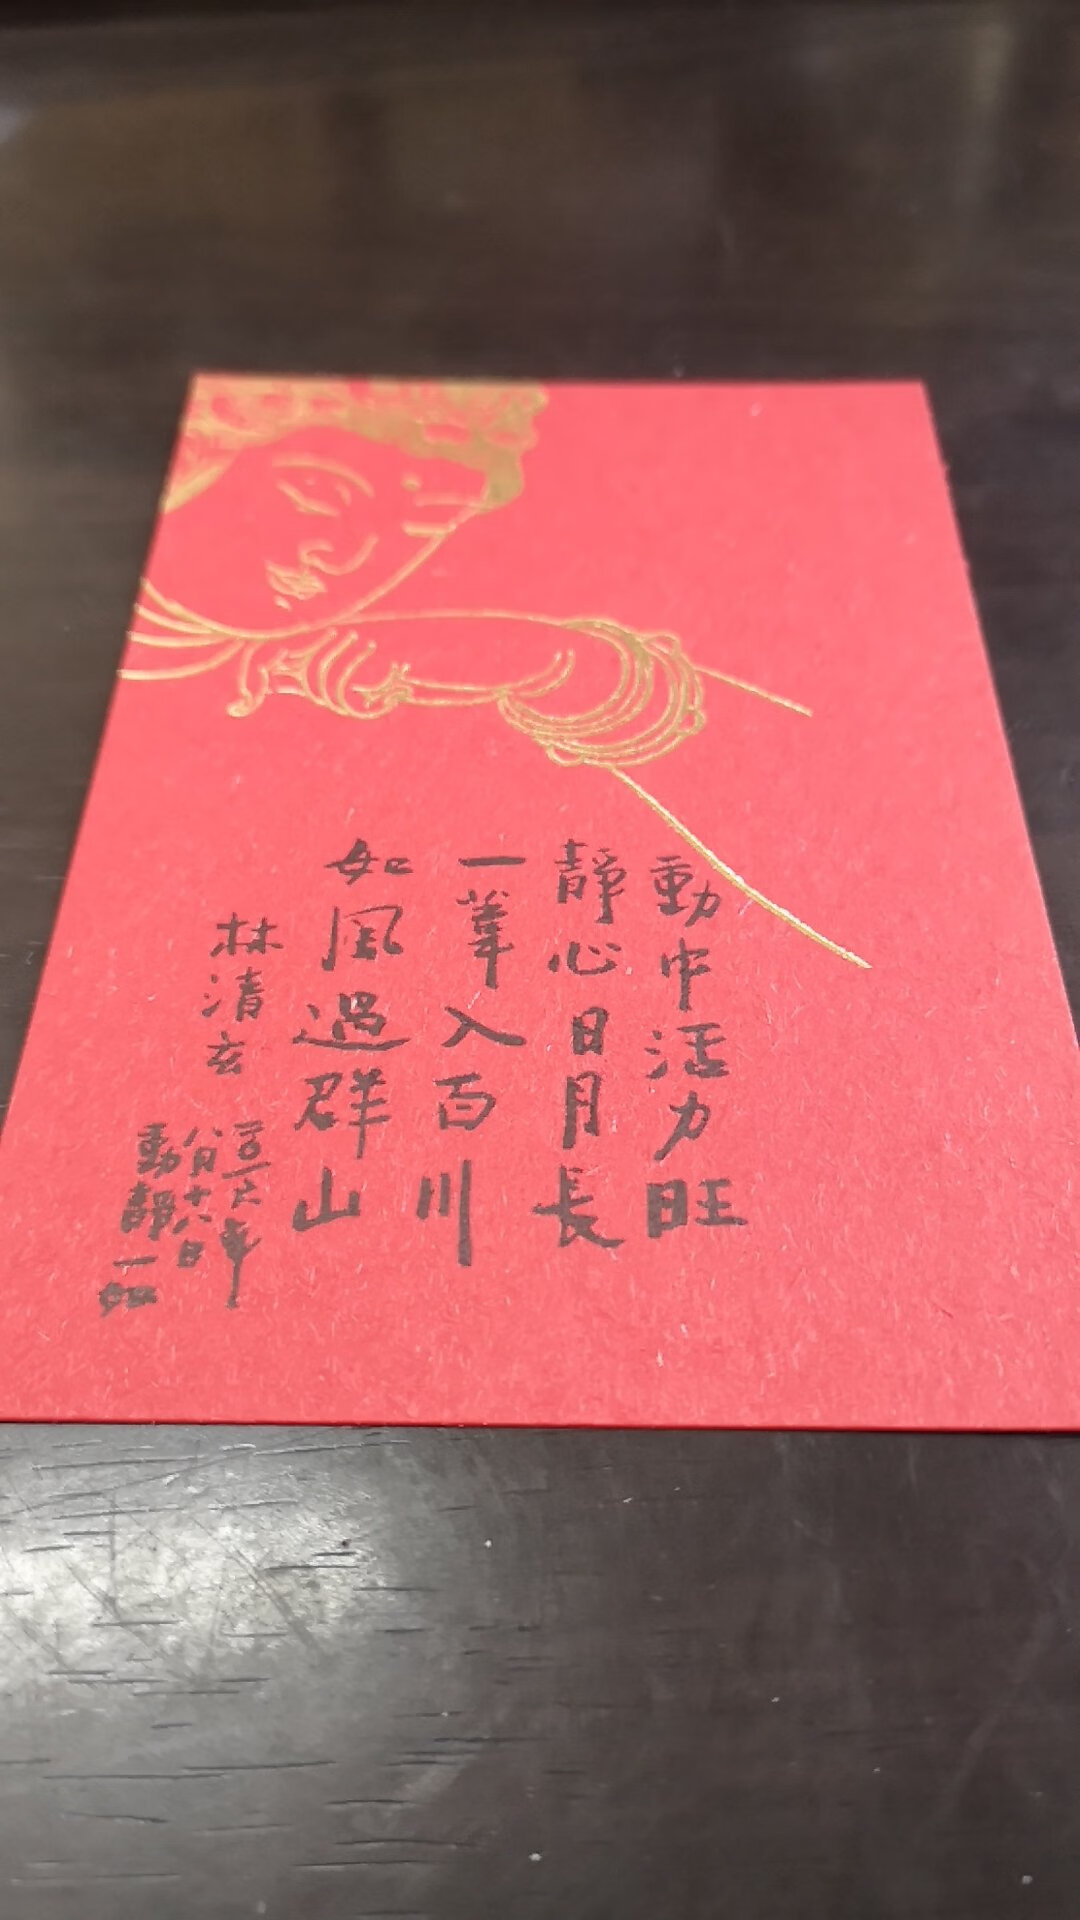 動中活力旺
靜心日月長
一葦入百川
如風過群山
林清玄
二〇一六年
八月十八日
動靜一如